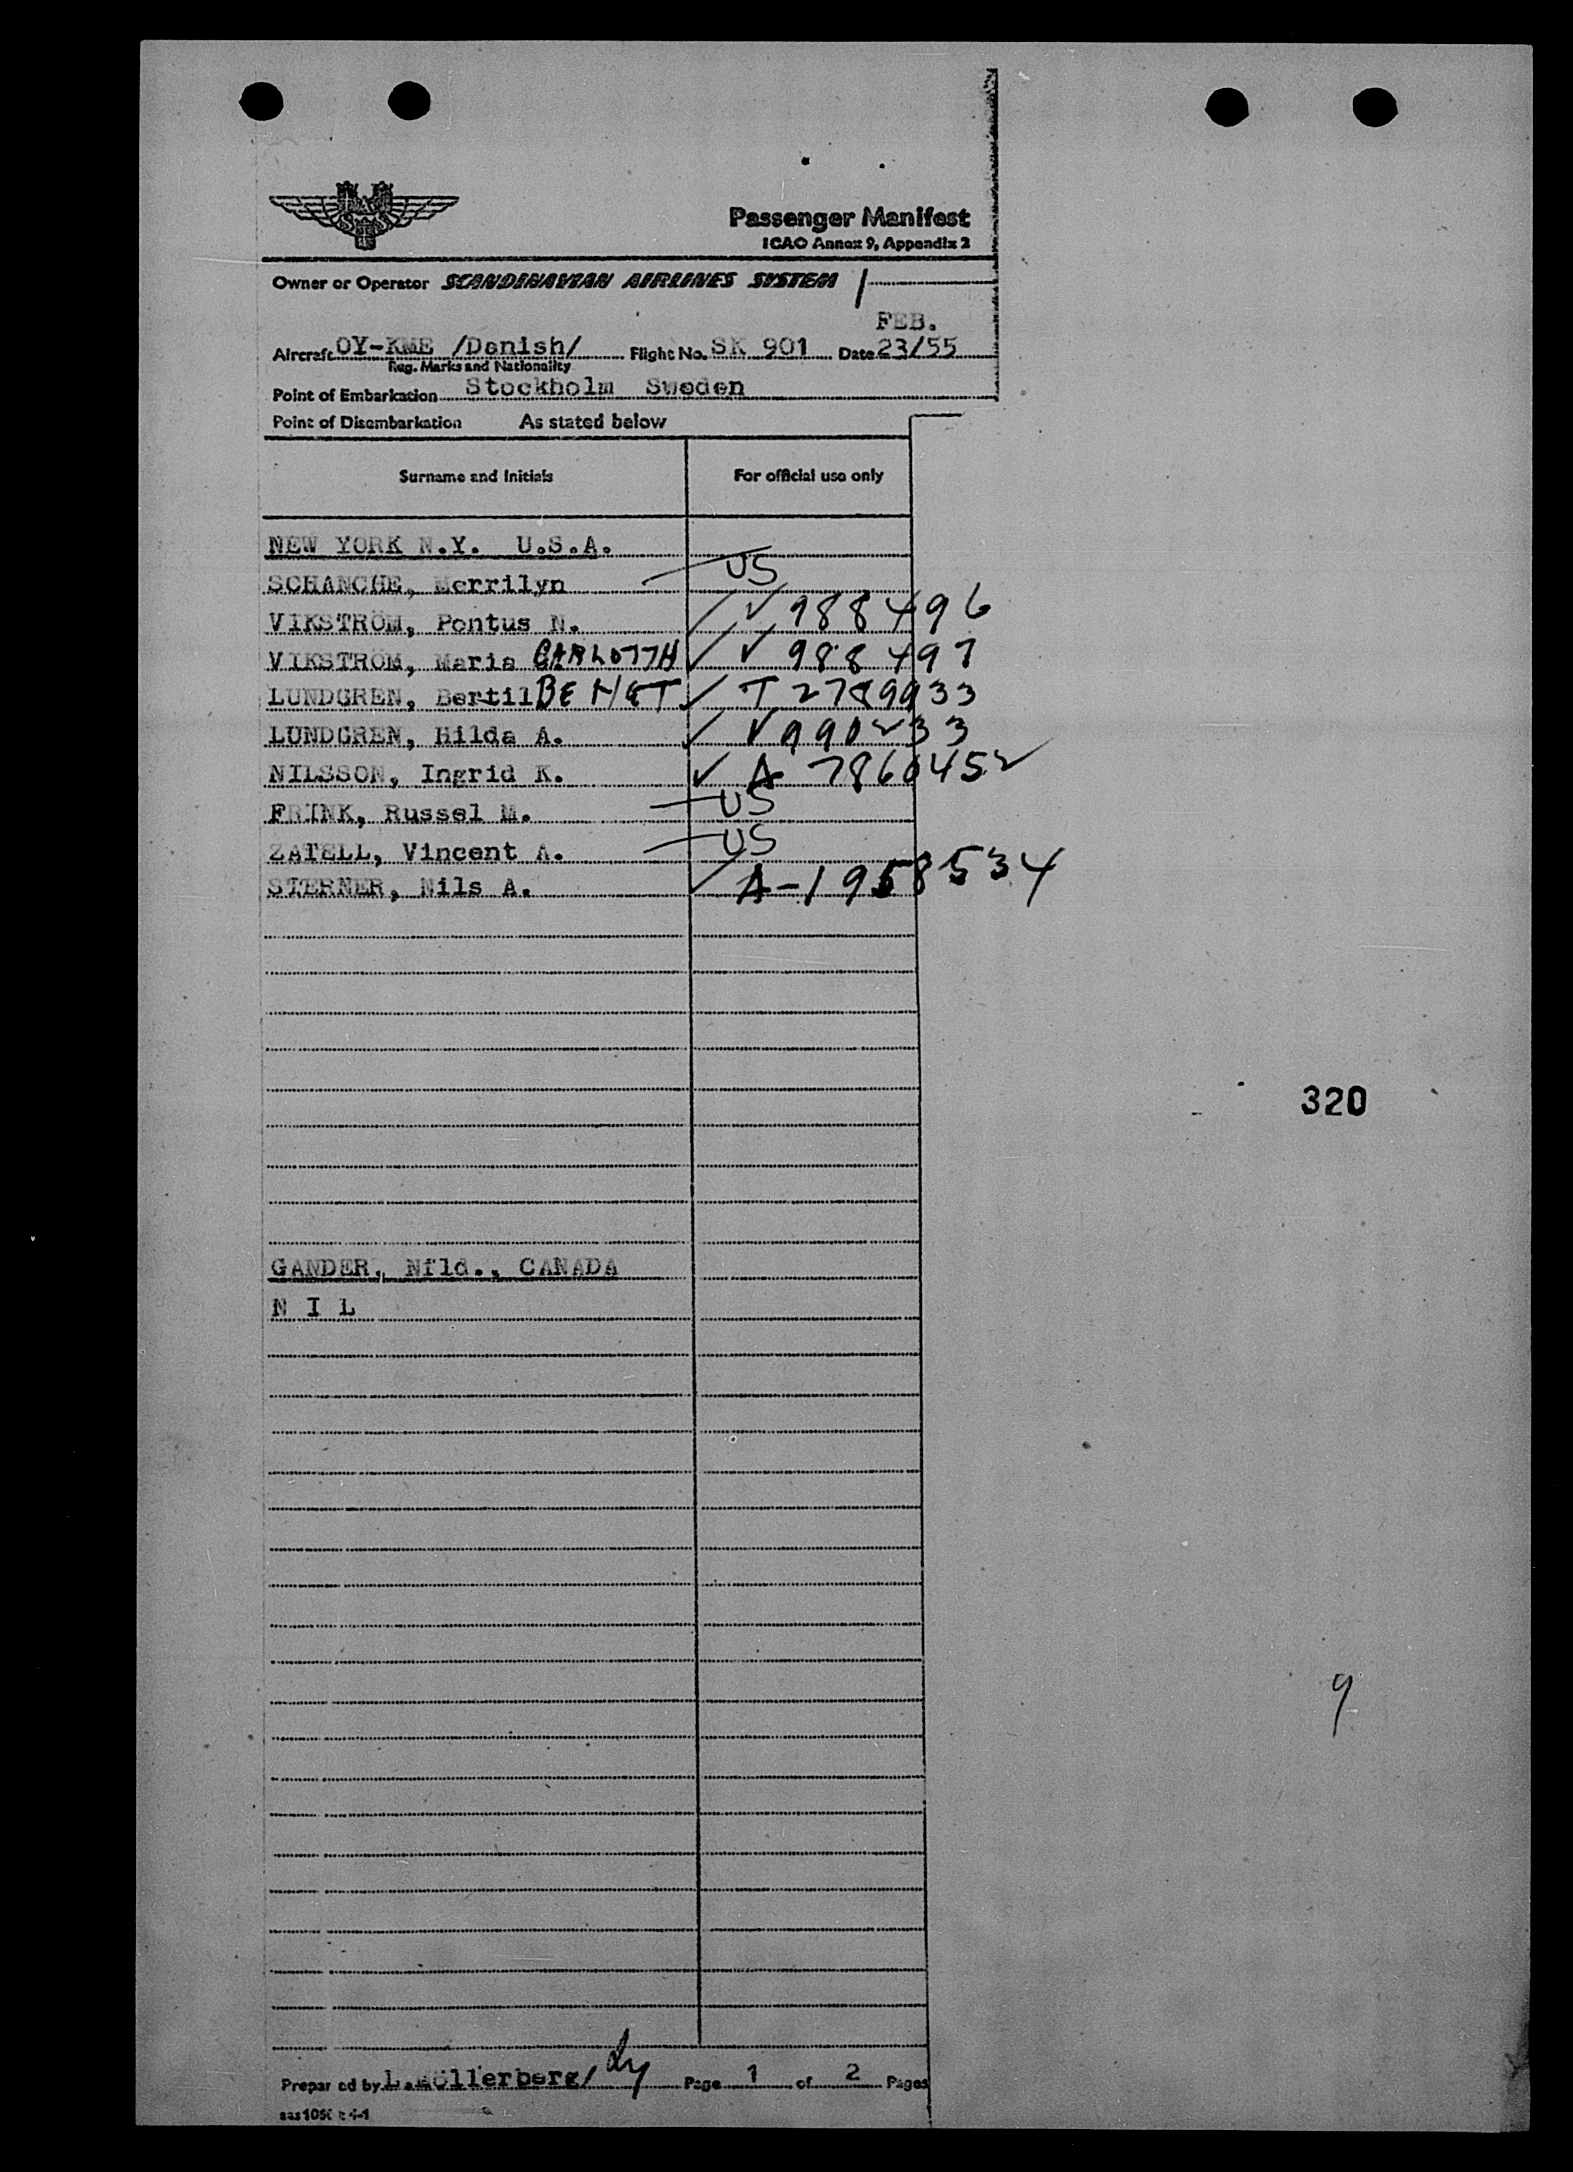 Passenger Manifest
ICAO Annex 9, Appendix 2
Owner or Operator SCANDINAVIAN AIRLINES SYSTEM
FEB.
Aircraft OY-KME /Danish/ Flight No. SK 901 Date 23/55
Reg. Marks and Nationality
Point of Embarkation Stockholm Sweden
Point of Disembarkation As stated below
Surname and Initials For official use only
NEW YORK N.Y. U.S.A.
SCHANCHE, Merrilyn US
VIKSTRÖM, Pontus N. ✓ V 988496
VIKSTRÖM, Maria CARLOTTA ✓ V 988497
LUNDGREN, Bertil BENGT ✓ T 2789933
LUNDGREN, Hilda A. ✓ V 990233
NILSSON, Ingrid K. ✓ A 7860452
FRINK, Russel M. US
ZATELL, Vincent A. US
STERNER, Nils A. ✓ A-1958534
320
GANDER, Nfld., CANADA
N I L
9
Prepared by L. Möllerberg/ Page 1 of 2 Pages